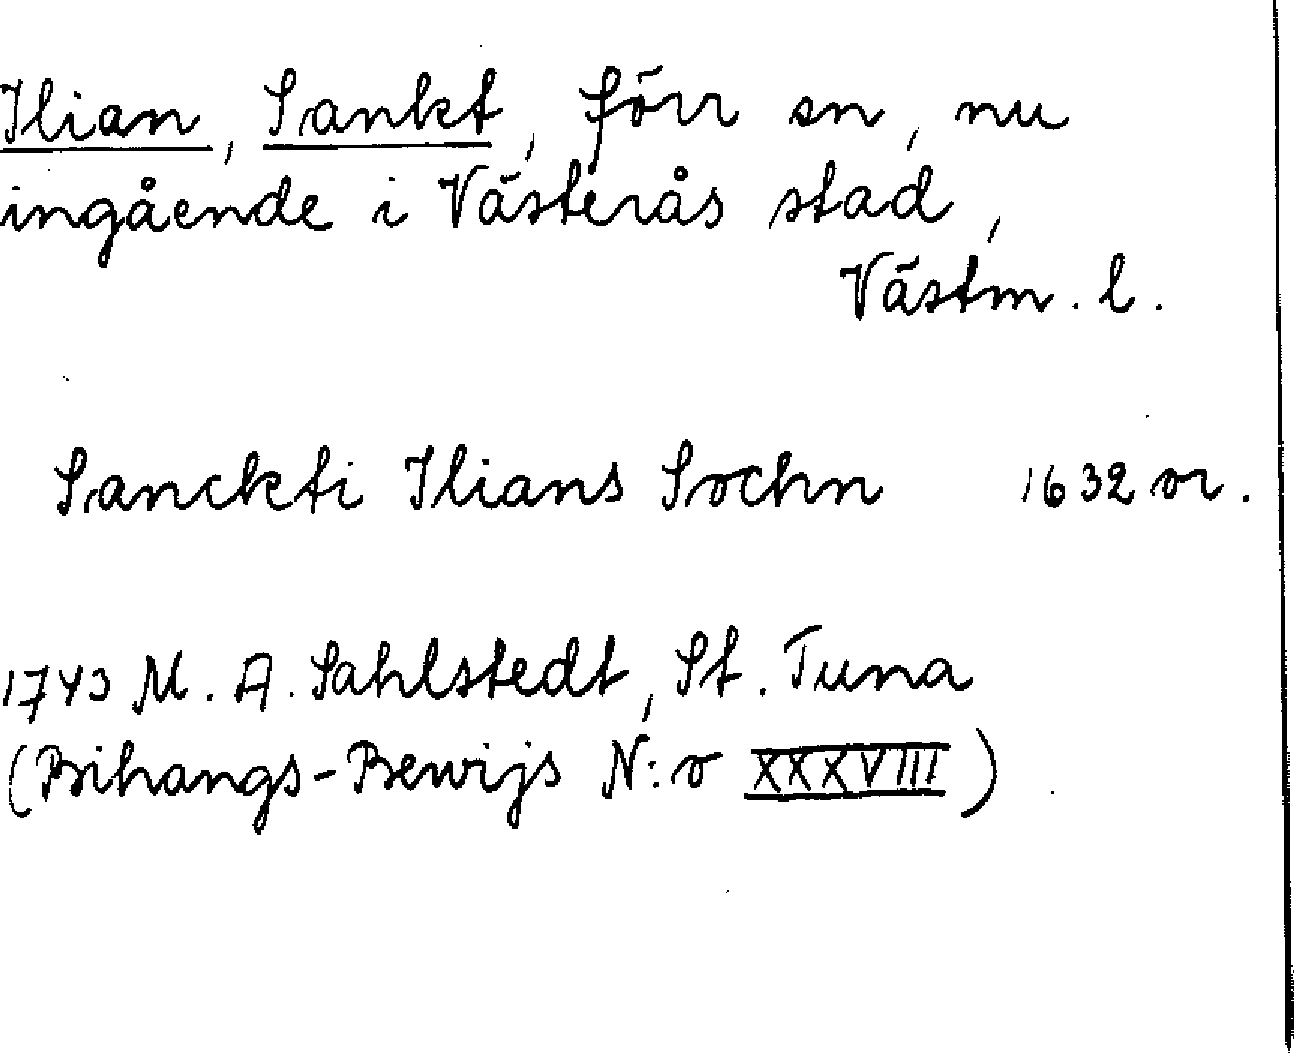 Ilian, Sankt, förr sn, nu
ingående i Västerås stad,
Västm. l.
Sanckti Ilians Sochn 1632 or.
1743 M. A. Sahlstedt, St. Tuna
(Bihangs-Bewijs N:o XXXVIII)